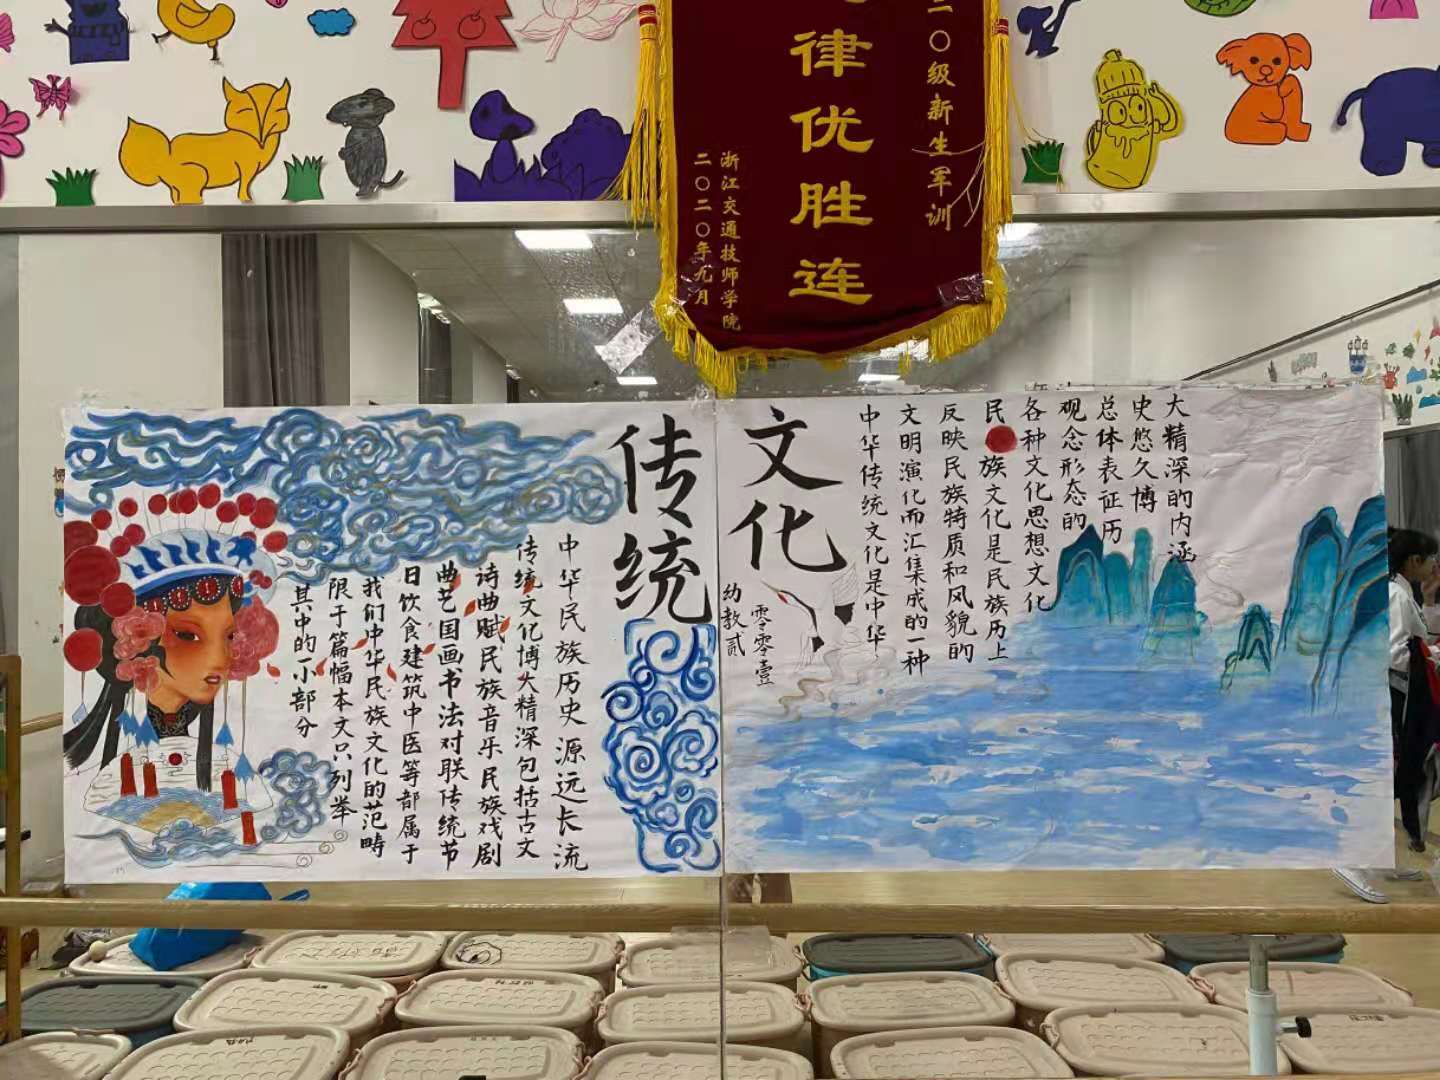 二〇级新生军训
律优胜连
浙江交通技师学院
二〇二〇年九月
传统
文化
中华传统文化是中华
文明演化而汇集成的一种
反映民族特质和风貌的
民族文化是民族历上
各种文化思想文化
观念形态的
总体表征历
史悠久博
大精深的内涵
幼教贰
零零壹
中华民族历史源远长流
传统文化博大精深包括古文
诗曲赋民族音乐民族戏剧
曲艺国画书法对联传统节
日饮食建筑中医等部属于
我们中华民族文化的范畴
限于篇幅本文只列举
其中的一小部分